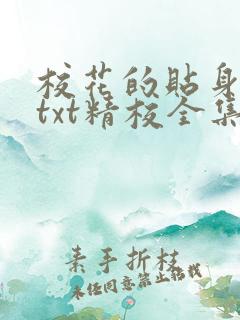 校花的贴身
txt精校全集
素手折枝
未经同意禁止搬载